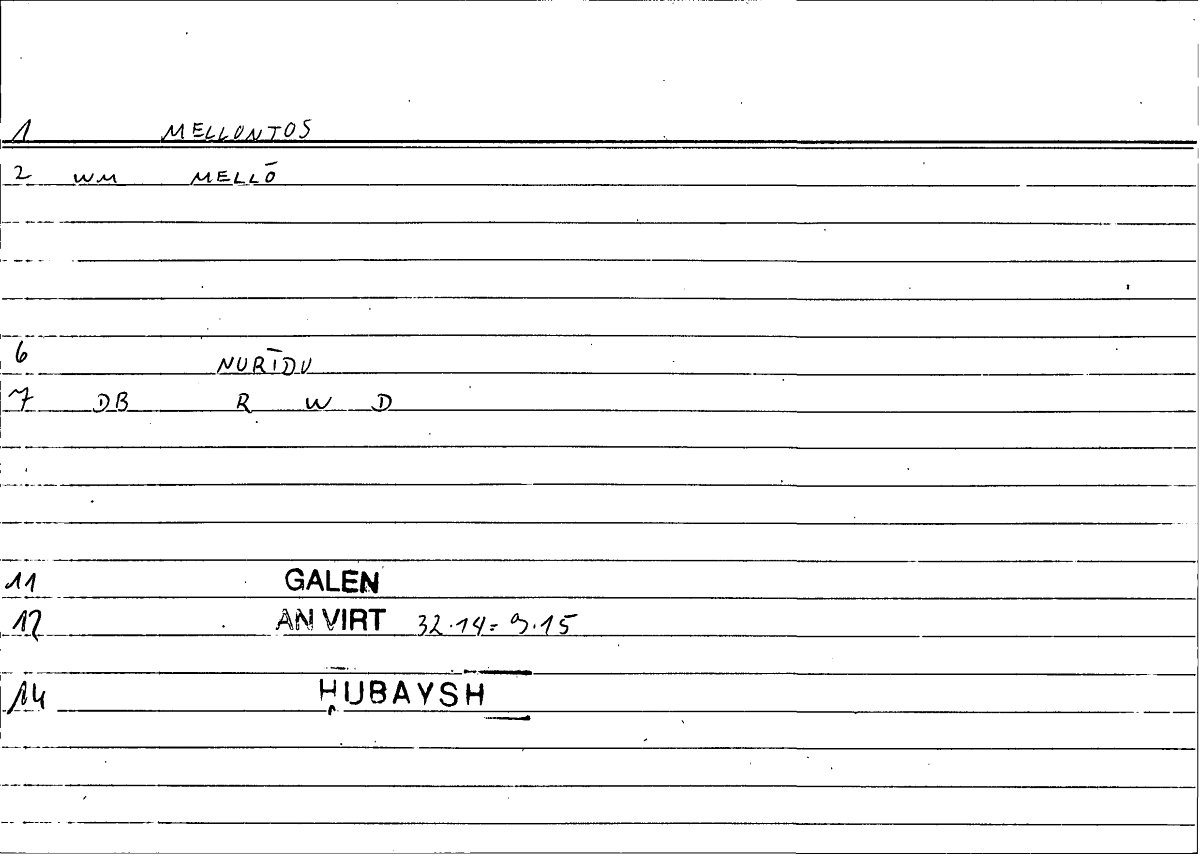 1 MELLONTOS
2 WM MELLŌ
6 NURĪDU
7 DB R W D
11 GALEN
12 AN VIRT 32.14 = 9.15
14 ḤUBAYSH